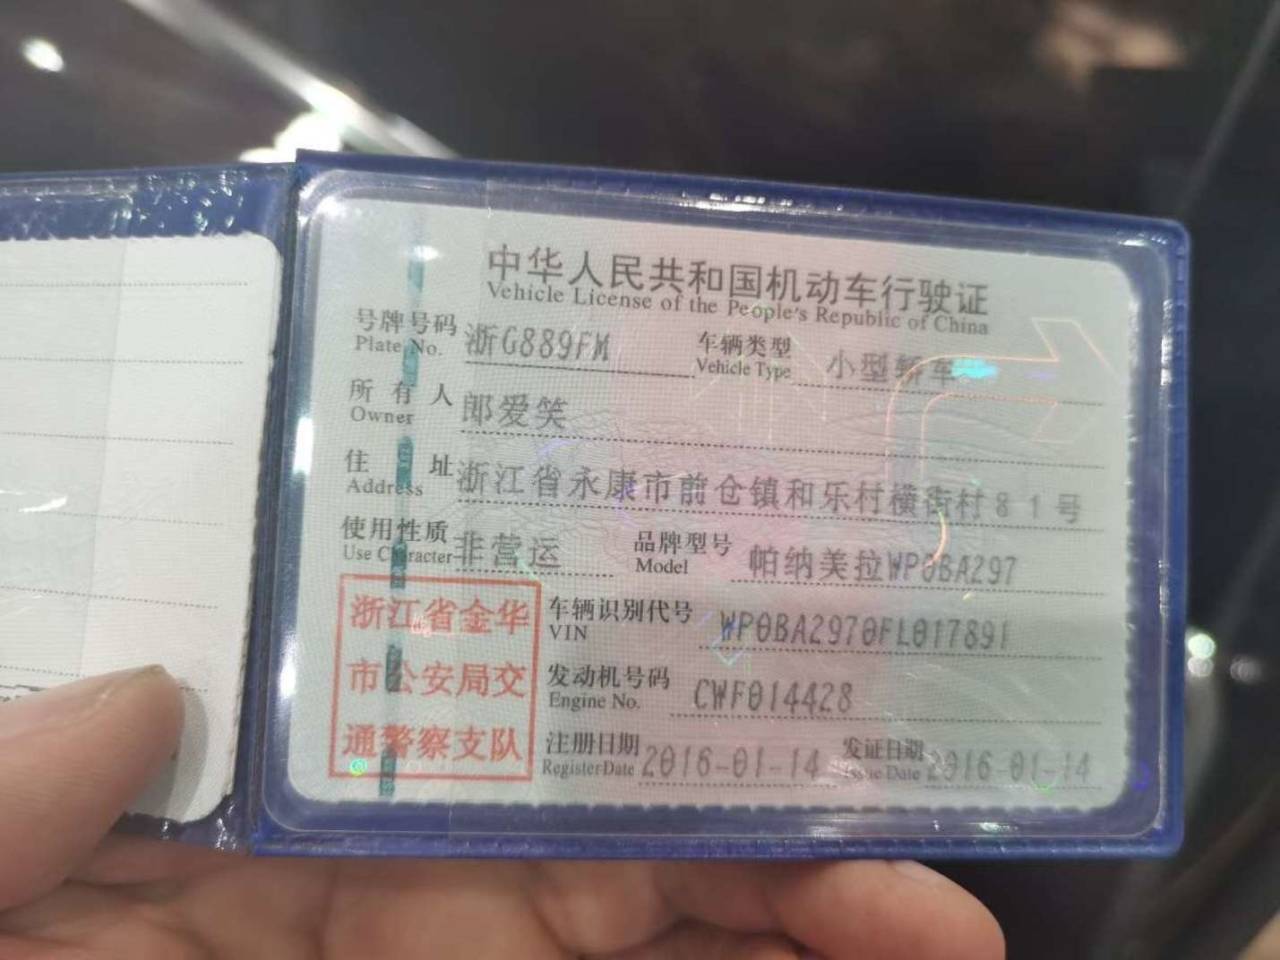 中华人民共和国机动车行驶证
Vehicle License of the People's Republic of China
号牌号码 浙G889FM 车辆类型 小型轿车
Plate No. Vehicle Type
所有人 郎爱笑
Owner
住址 浙江省永康市前仓镇和乐村横街村81号
Address
使用性质 非营运 品牌型号 帕纳美拉WP0BA297
Use Character Model
浙江省金华 车辆识别代号 WP0BA2970FL017891
VIN
市公安局交 发动机号码 CWF014428
Engine No.
通警察支队 注册日期 2016-01-14 发证日期 2016-01-14
Register Date Issue Date